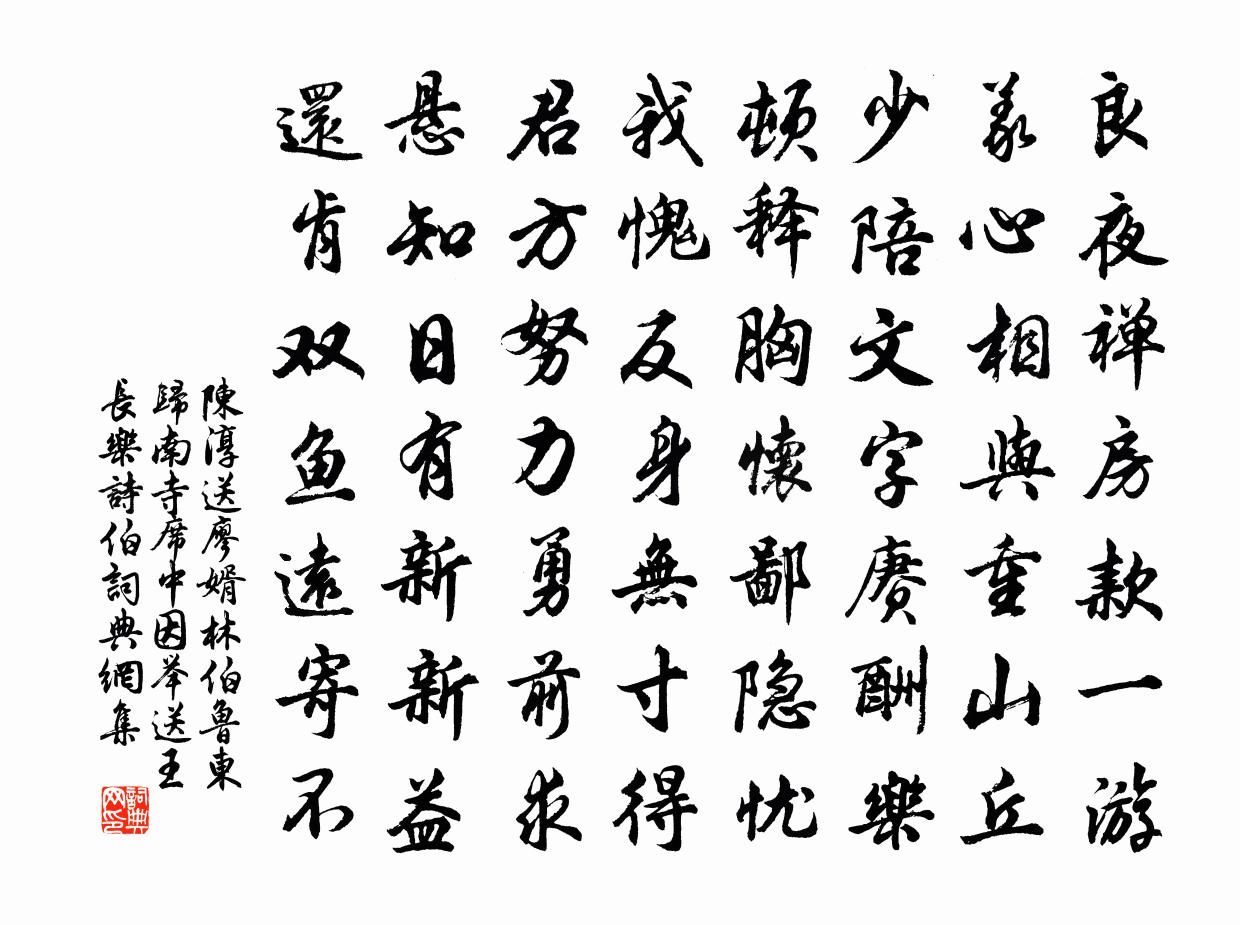 良夜禅房款一游
义心相與重山丘
少陪文字赓酬樂
顿释胸懷鄙隐忧
我愧反身無寸得
君方努力勇前求
悬知日有新新益
還肯双鱼遠寄不
陳淳送廖婿林伯魯東
歸南寺席中因举送王
長樂詩伯詞典網集
詞典
网印